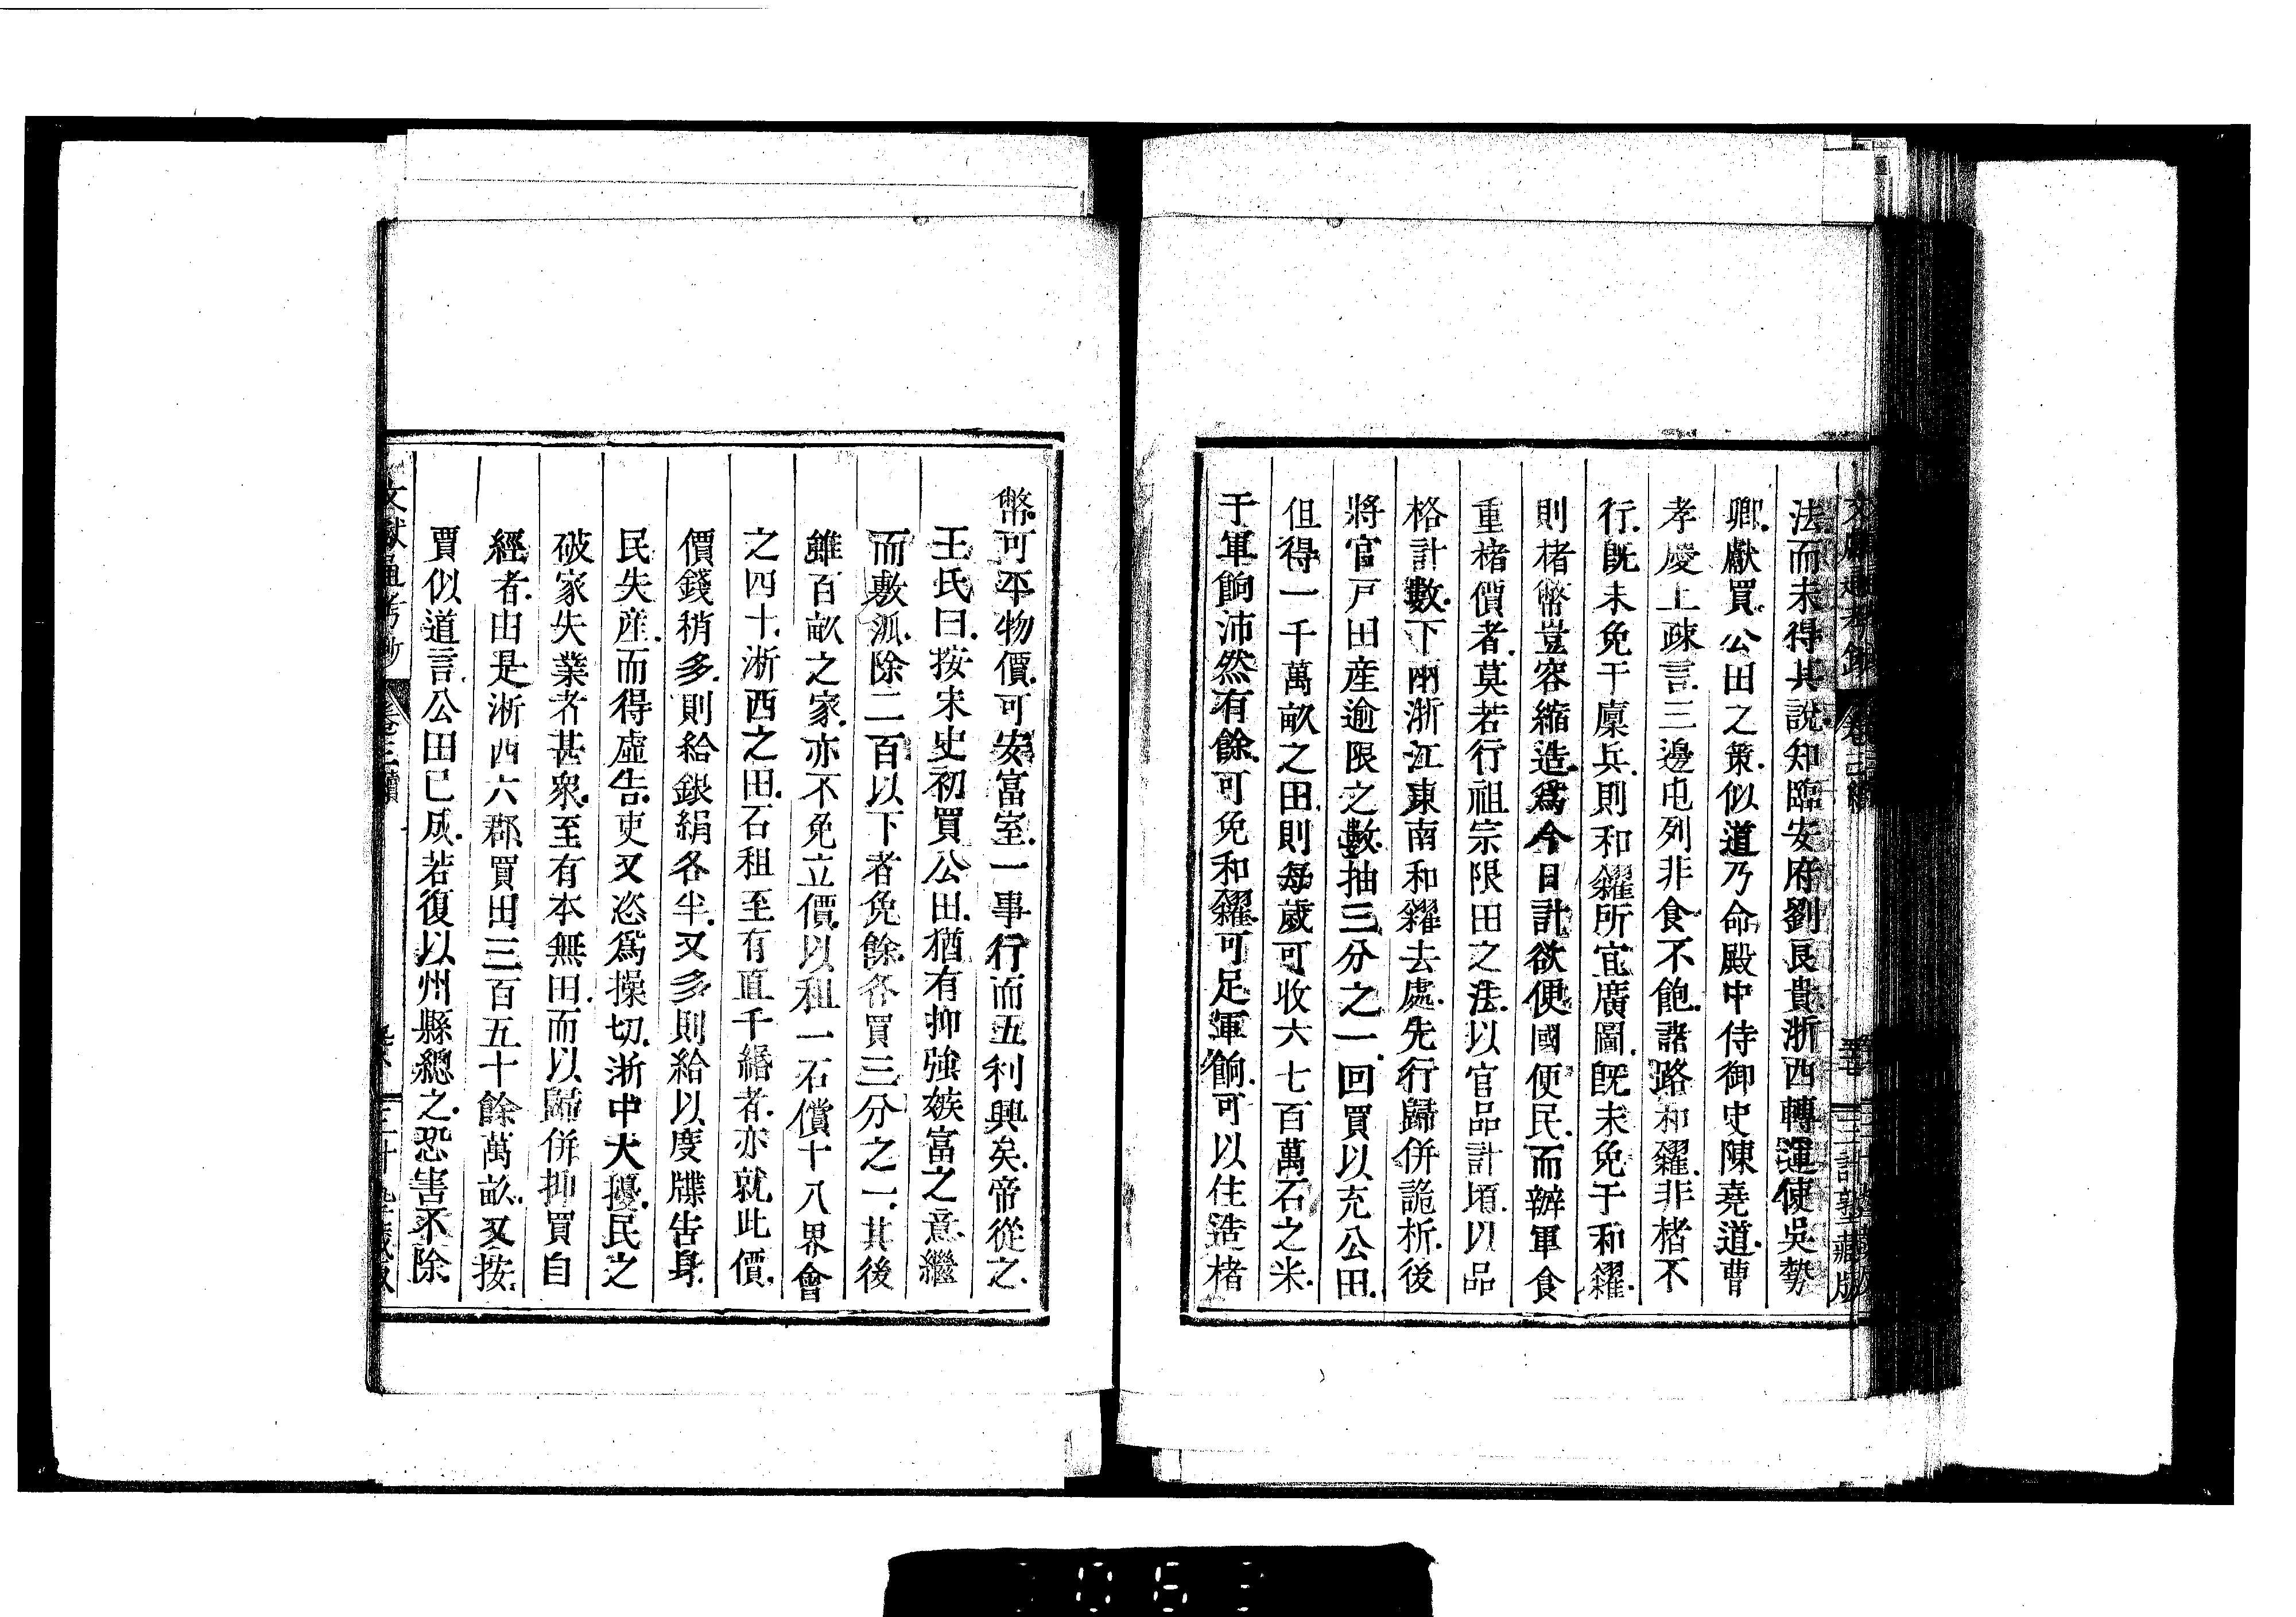 法而未得其説知臨安府劉良貴浙西轉運使吳勢
卿獻買公田之策似道乃命殿中侍御史陳堯道曹
孝慶上疎言三邊屯列非食不飽諸路和糴非楮不
行既未免于廩兵則和糴所宜廣圖既未免于和糴
則楮幣豈容縮造爲今日計欲便國便民而辦軍食
重楮價者莫若行祖宗限田之法以官品計頃以品
格計數下兩浙江東南和糴去處先行歸併詭析後
將官戸田産逾限之數抽三分之一回買以充公田
但得一千萬畝之田則每歲可收六七百萬石之米
于軍餉沛然有餘可免和糴可足軍餉可以住造楮
幣可平物價可安富室一事行而五利興矣帝從之
王氏曰按宋史初買公田猶有抑強嫉富之意繼
而敷派除二百以下者免餘各買三分之一其後
雖百畝之家亦不免立價以租一石償十八界會
之四十浙西之田石租至有直千緡者亦就此價
價錢稍多則給銀絹各半又多則給以度牒告身
民失産而得虛告吏又恣爲操切浙中大擾民之
破家失業者甚衆至有本無田而以歸併抑買自
經者由是浙西六郡買田三百五十餘萬畝又按
賈似道言公田已成若復以州縣總之恐害不除
文獻通考鈔 卷三續